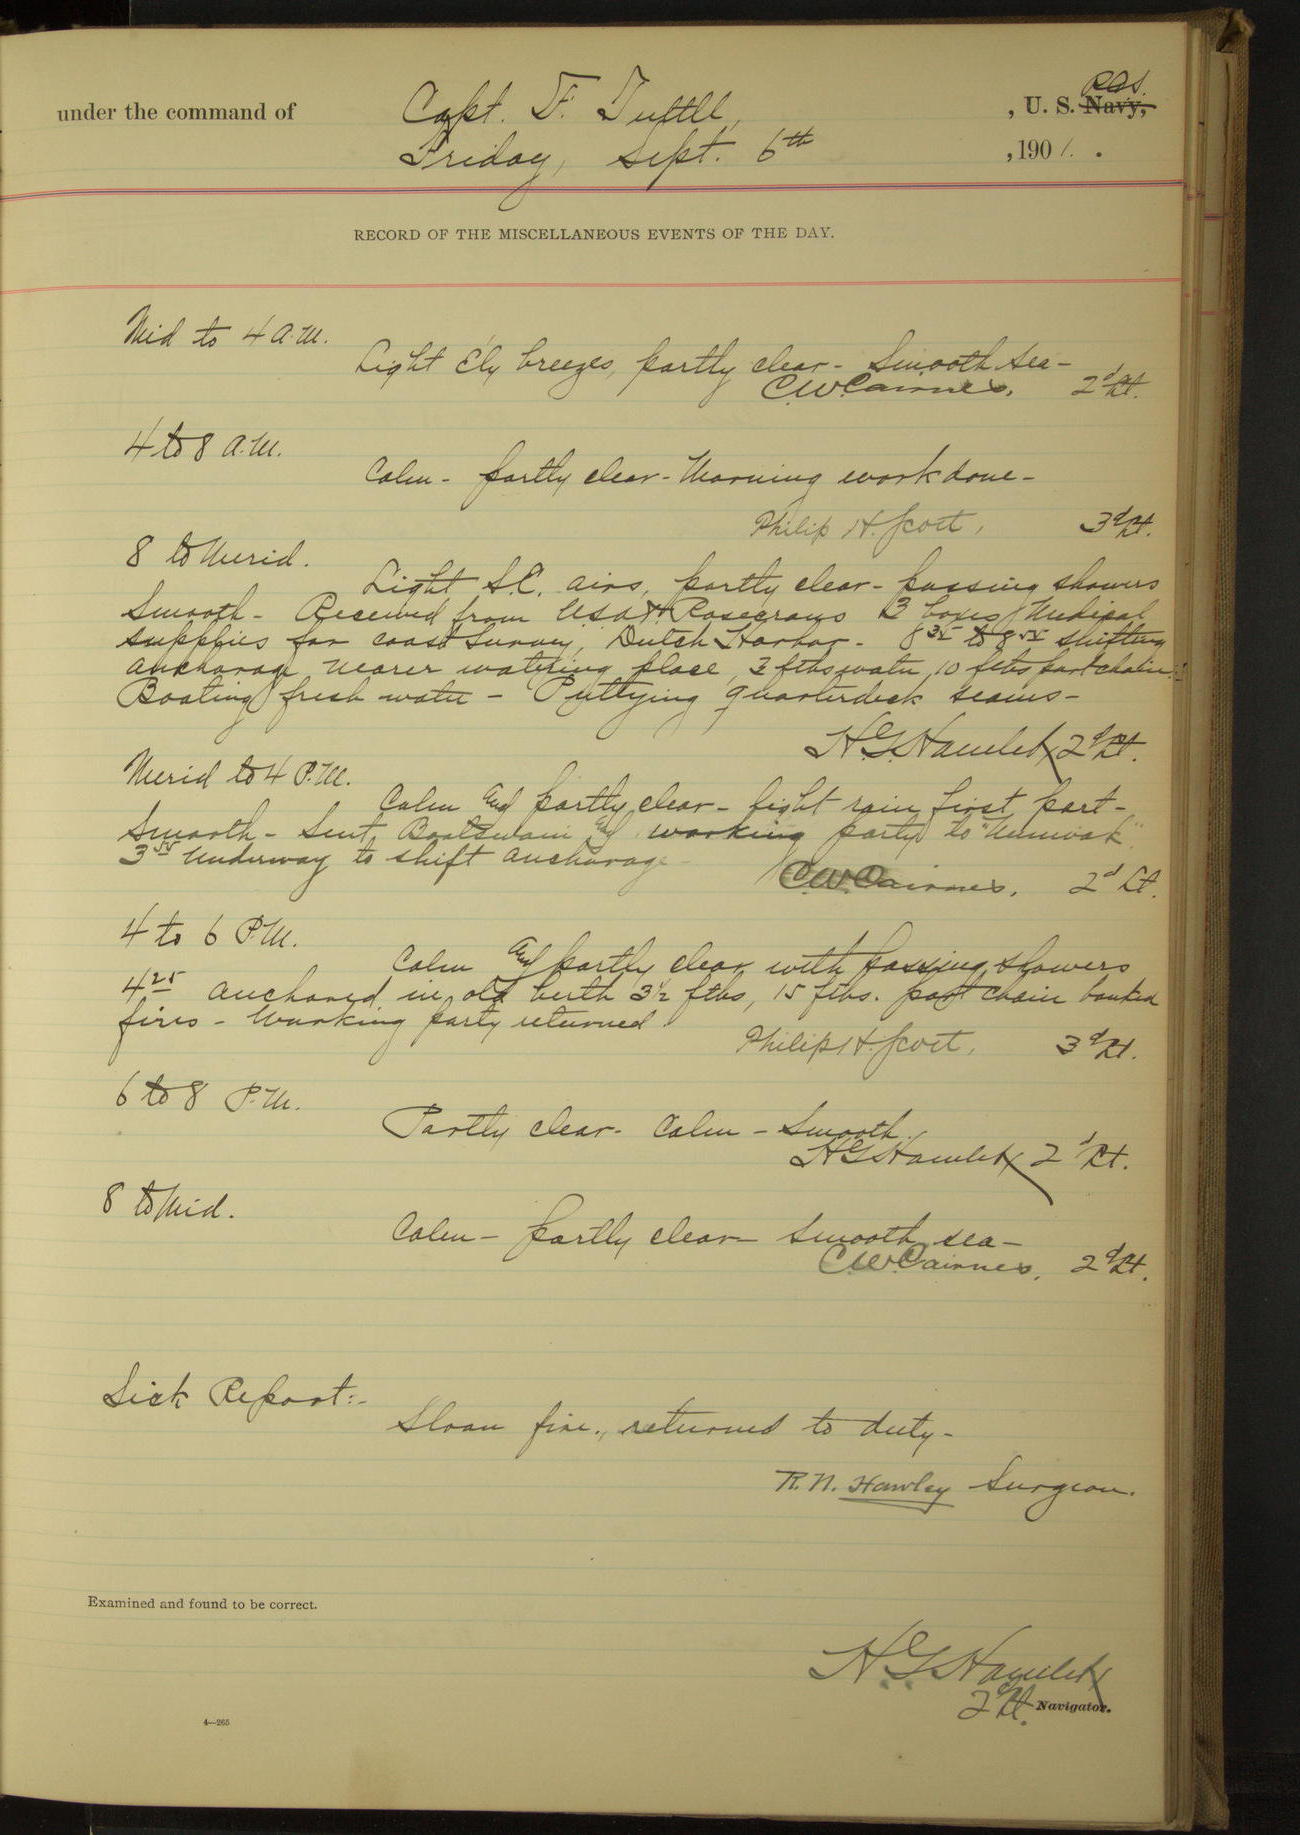 under the command of Capt. F. Tuttle, , U. S. Navy, RCS.
Friday, Sept. 6th , 1901. .
RECORD OF THE MISCELLANEOUS EVENTS OF THE DAY.
Mid to 4 A.M.
Light E'ly breezes, partly clear - Smooth sea -
C.W. Cairnes. 2d Lt.
4 to 8 A.M.
Calm - partly clear - Morning work done -
Philip H. Scott, 3d Lt.
8 to Merid.
Light S.E. airs, partly clear - passing showers
Smooth - Received from USAT Rosecrans 3 boxes Medical
supplies for coast Survey, Dutch Harbor - 8 35 to 8 55 shifting
anchorage nearer watering place, 3 fths water, 10 fths port chain.
Boating fresh water - Puttying quarterdeck seams -
H G Hamlet 2d Lt.
Merid to 4 P.M.
Calm and partly clear - light rain first part -
Smooth - Sent Boatswain and working party to "Nunivak"
3 55 Underway to shift anchorage -
C.W. Cairnes. 2d Lt.
4 to 6 P.M.
Calm and partly clear with passing showers
4 25 anchored in old berth 3½ fths, 15 fths. port chain banked
fires - Working party returned
Philip H. Scott, 3d Lt.
6 to 8 P.M.
Partly clear - Calm - Smooth.
H G Hamlet 2d Lt.
8 to Mid.
Calm - partly clear - Smooth sea -
C.W. Cairnes. 2d Lt.
Sick Report:-
Sloan fire., returned to duty -
R. N. Hawley Surgeon.
Examined and found to be correct.
H G Hamlet
2d Lt. Navigator.
4—265